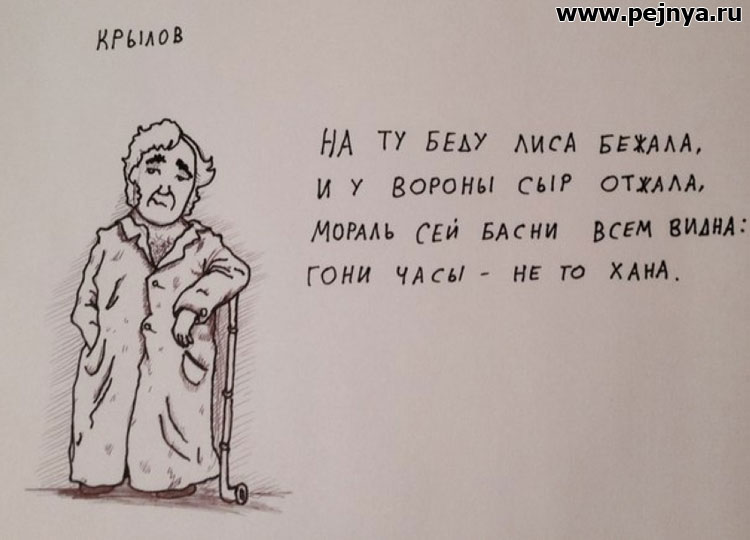 www.pejnya.ru
КРЫЛОВ
НА ТУ БЕДУ ЛИСА БЕЖАЛА,
И У ВОРОНЫ СЫР ОТЖАЛА,
МОРАЛЬ СЕЙ БАСНИ ВСЕМ ВИДНА:
ГОНИ ЧАСЫ - НЕ ТО ХАНА.